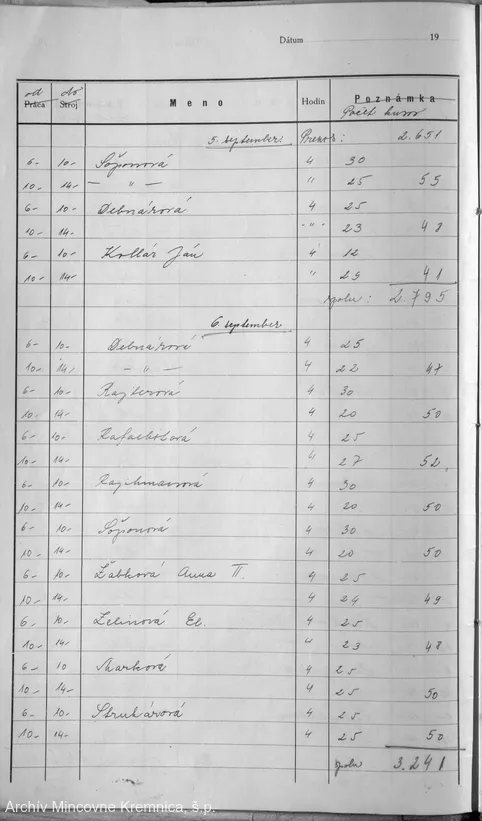 Dátum 19
od do
Práca Stroj Meno Hodín Poznámka
Počet kusov
5. september Prenos: 2.651
6- 10- Šóponová 4 30
10- 14- — " — " 25 55
6- 10- Debnárová 4 25
10- 14- -"- 23 48
6- 10- Kollár Ján 4 12
10- 14- " 29 41
spolu: 2.795
6. september
6- 10- Debnárová 4 25
10- 14- — " — 4 22 47
6- 10- Rajterová 4 30
10- 14- 4 20 50
6- 10- 4 25
10- 14- 4 27 52
6- 10- 4 30
10- 14- 4 20 50
6- 10- Šóponová 4 30
10- 14- 4 20 50
6- 10- Žabková Anna II. 4 25
10- 14- 4 24 49
6- 10- Zelinová El. 4 25
10- 14- 4 23 48
6- 10 Marková 4 25
10- 14- 4 25 50
6- 10- Struhárová 4 25
10- 14- 4 25 50
spolu 3.241
Archív Mincovne Kremnica, š.p.